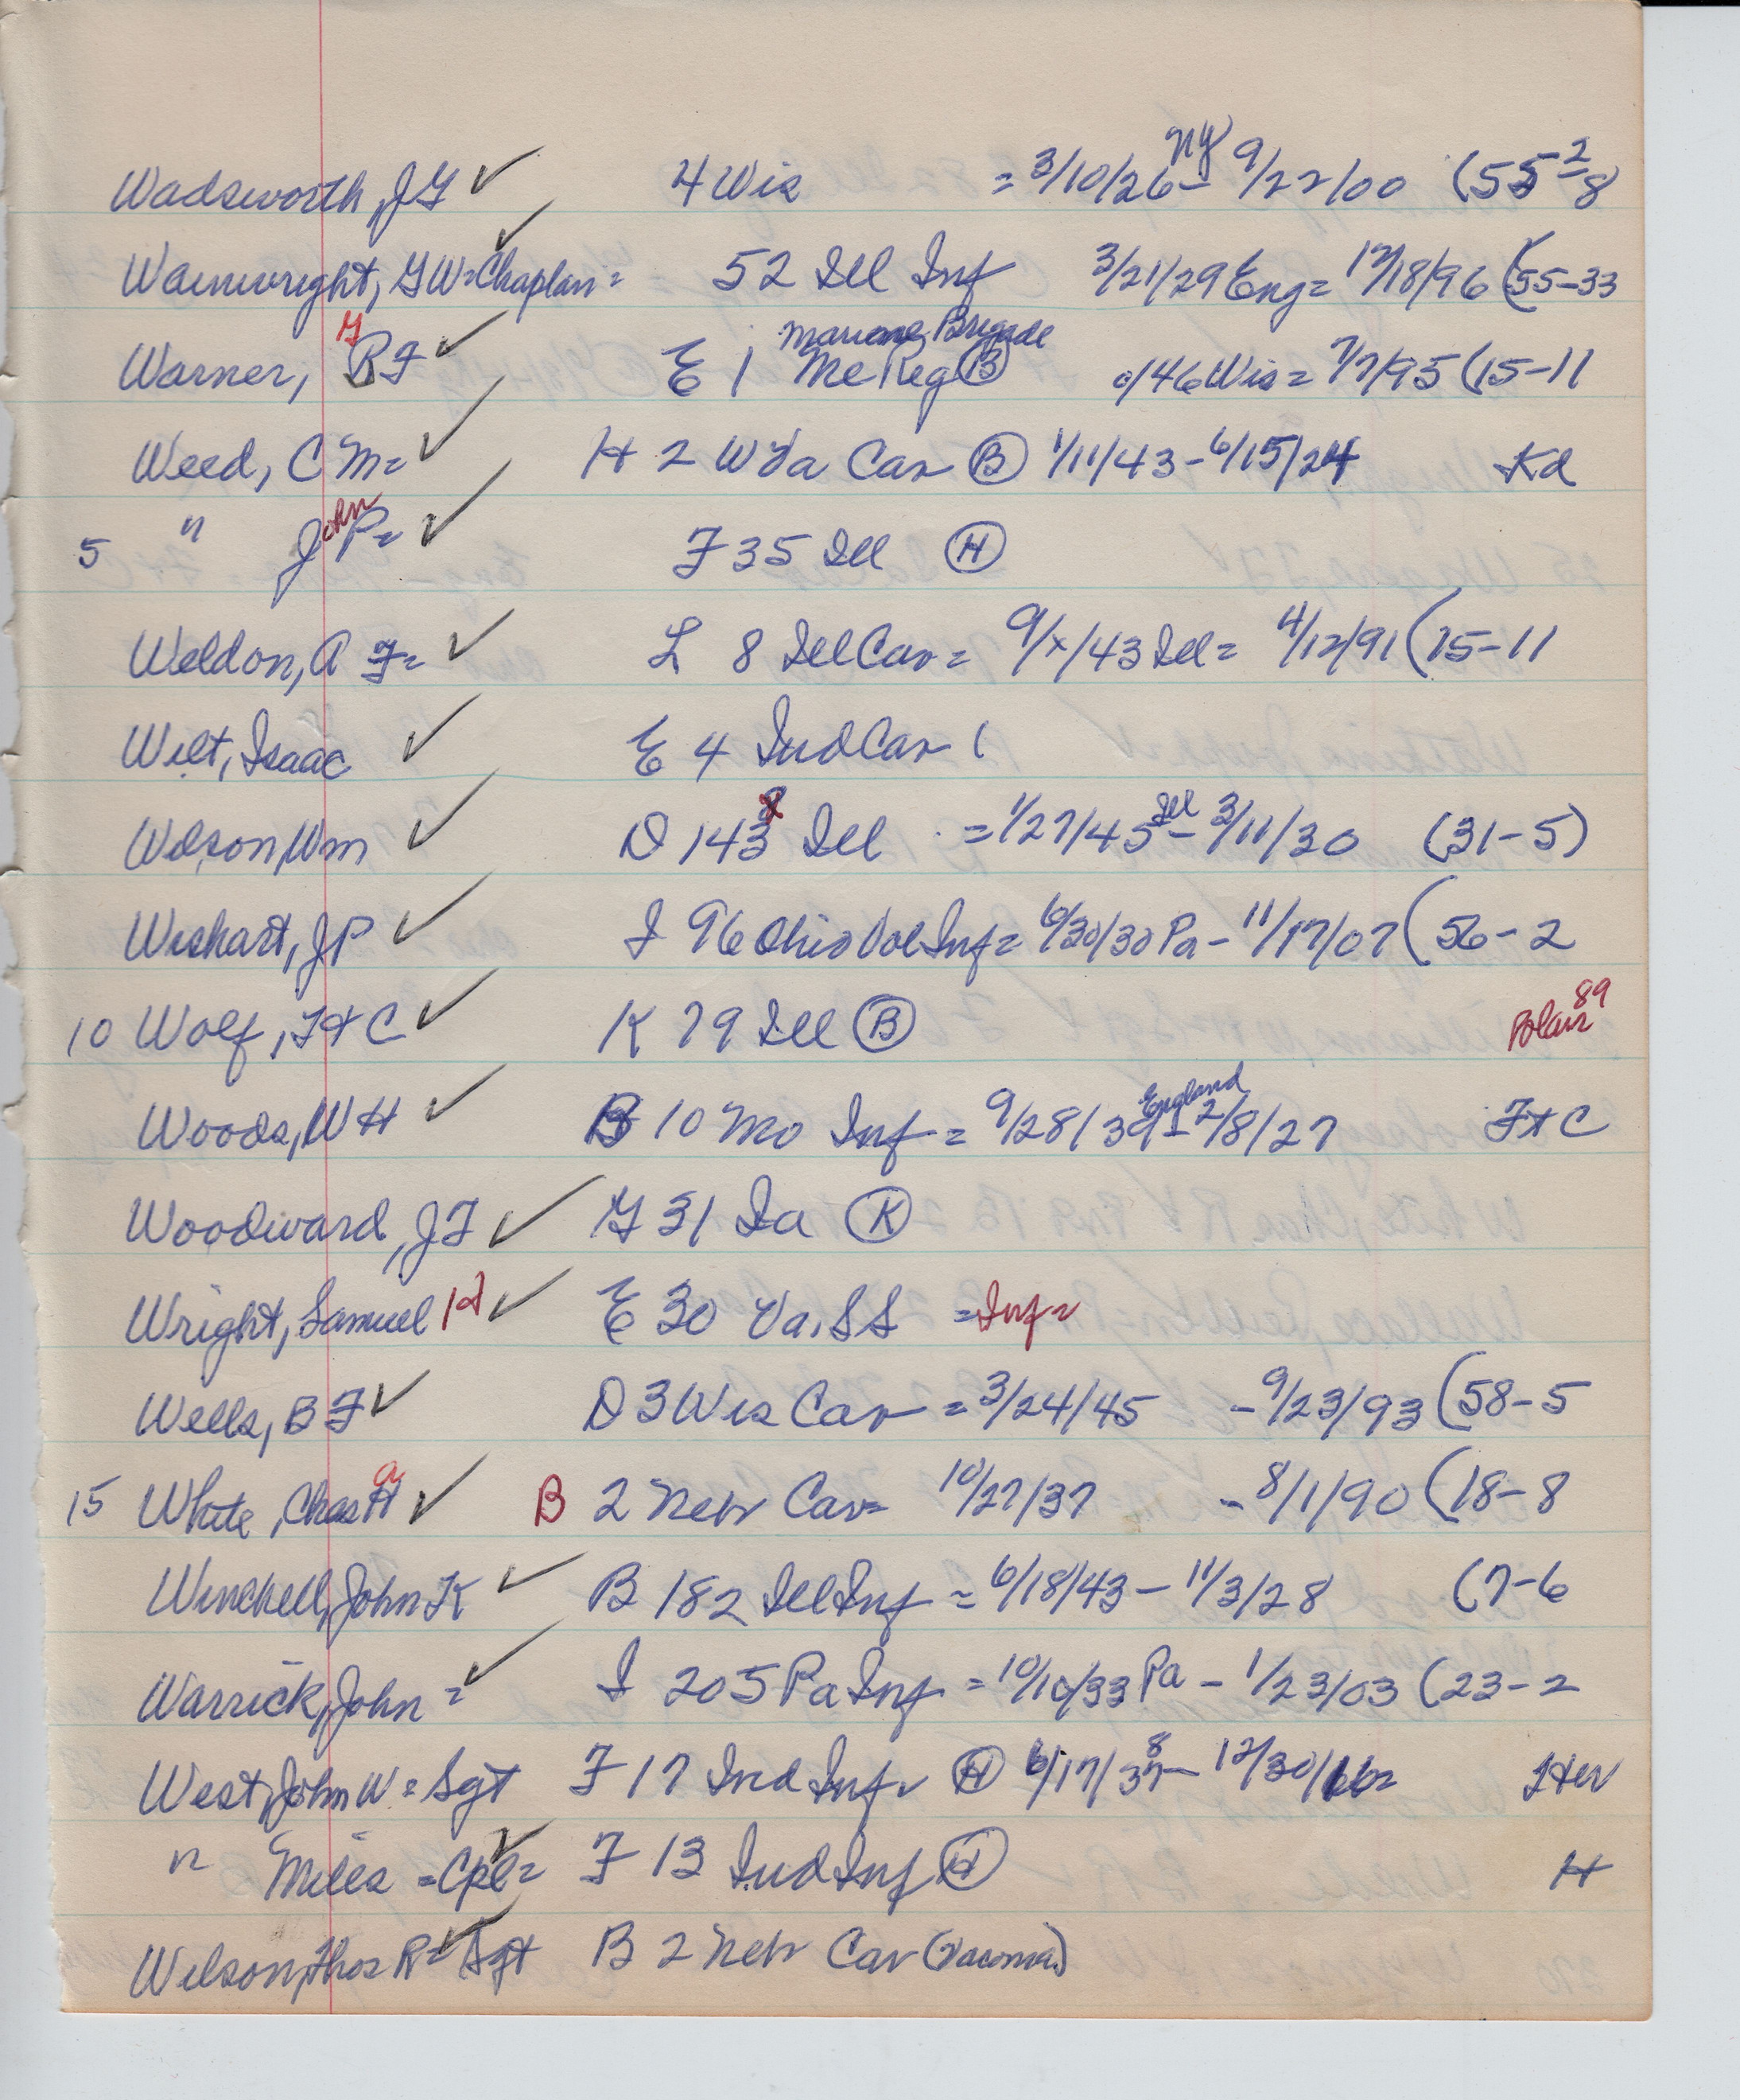 Wadsworth, J G ✓ 4 Wis = 3/10/26 NY - 9/22/00 (55 2-8
Wainwright, G W = Chaplan = ✓ 52 Ill Inf 3/21/29 Eng = 12/18/96 (55-33
Warner, G R F ✓ E 1 Marine Brigade Me Reg (B) 0/46 Wis = 7/7/95 (15-11
Weed, C M = ✓ H 2 W Va Cav (B) 1/11/43 - 6/15/24 Kd
5 " John P = ✓ F 35 Ill (H)
Weldon, A F = ✓ L 8 Ill Cav = 9/x/43 Ill = 4/12/91 (15-11
Wilt, Isaac ✓ E 4 Ind Cav (
Wilson, Wm ✓ D 143 Ill = 1/27/45 Ill - 3/11/30 (31-5)
Wishart, J P ✓ I 96 Ohio Vol Inf = 6/30/30 Pa - 11/17/07 (56-2
10 Wolf, F + C ✓ K 79 Ill (B) 89
Woods, W H ✓ B 10 Mo Inf = 9/28/39 England - 2/8/27 F + C
Woodward, J F ✓ G 31 Ia (K)
Wright, Samuel H ✓ E 30 Va. S S = Inf =
Wells, B F ✓ D 3 Wis Cav = 3/24/45 - 9/23/93 (58-5
15 White, Chas A ✓ B 2 Nebr Cav = 10/27/37 - 8/1/90 (18-8
Winchell, John K ✓ B 182 Ill Inf = 6/18/43 - 11/3/28 (7-6
Warrick, John = ✓ I 205 Pa Inf = 10/10/33 Pa - 1/23/03 (23-2
West, John W = Sgt F 17 Ind Inf (H) 6/17/37 8 - 12/30/
" Miles = Cpl = ✓ F 13 Ind Inf (H) H
Wilson, Thos R = Sgt ✓ B 2 Nebr Cav (Tacoma)